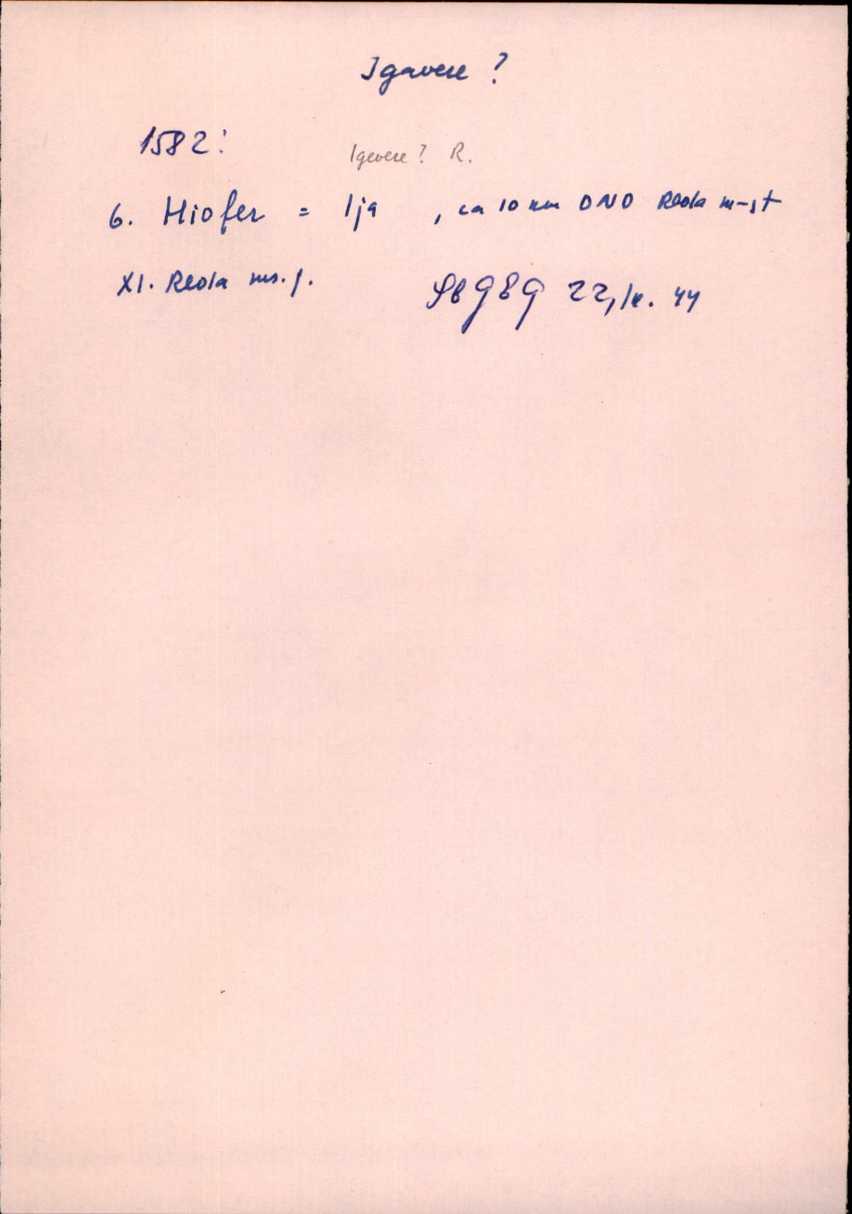 Igavere ?
1582:
Igevere? R.
6. Hiofer = Ija , ca 10 km ONO Reola m-st
XI. Reola ms. j.
SbGEG 22, lk. 44